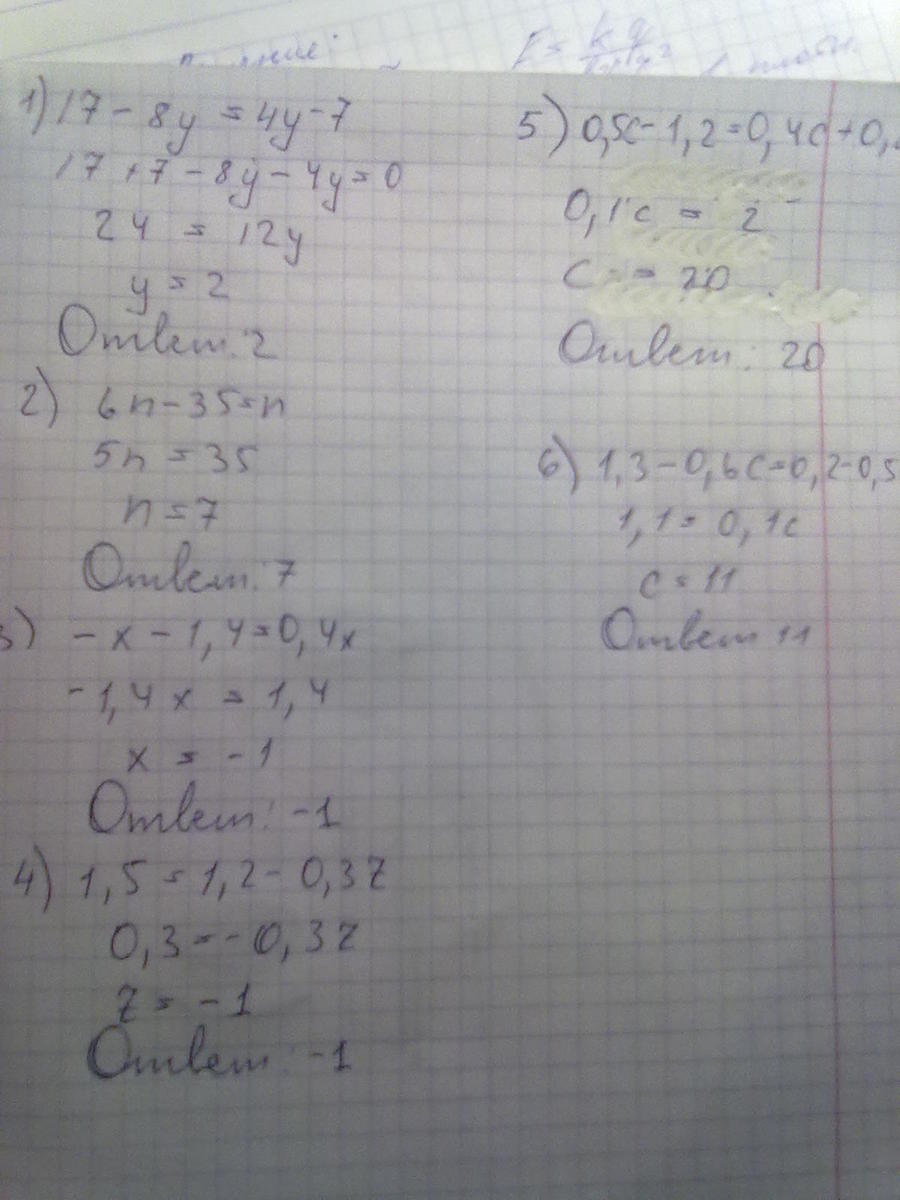 F = kq
1) 17 - 8y = 4y - 7
17 + 7 - 8y - 4y = 0
24 = 12y
y = 2
Ответ: 2
2) 6n - 35 = n
5n = 35
n = 7
Ответ: 7
3) - x - 1,4 = 0,4x
-1,4x = 1,4
x = -1
Ответ: -1
4) 1,5 = 1,2 - 0,3z
0,3 = -0,3z
z = -1
Ответ: -1
5) 0,5c - 1,2 = 0,4c + 0,
0,1c = 2
c = 20
Ответ: 20
6) 1,3 - 0,6c = 0,2 - 0,5
1,1 = 0,1c
c = 11
Ответ 11